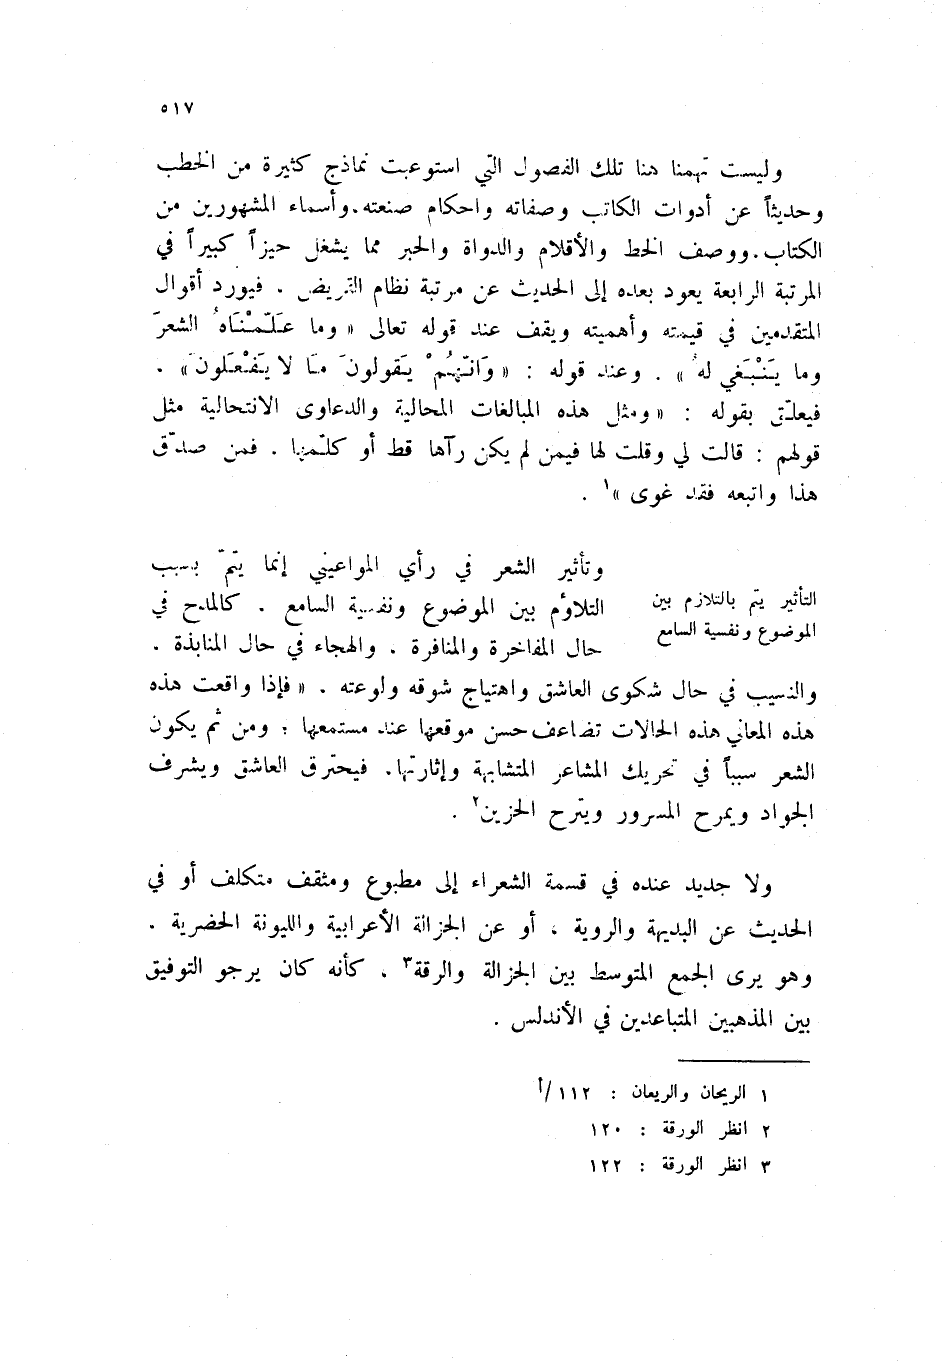 ٥١٧
وليست تهمنا هنا تلك الفصول التي استوعبت نماذج كثيرة من الخطب
وحديثاً عن أدوات الكاتب وصفاته واحكام صنعته.وأسماء المشهورين من
الكتاب.ووصف الخط والأقلام والدواة والحبر مما يشغل حيزاً كبيراً في
المرتبة الرابعة يعود بعده إلى الحديث عن مرتبة نظام القريض . فيورد أقوال
المتقدمين في قيمته وأهميته ويقف عند قوله تعالى « وما عَلَّمْنَاهُ الشعرَ
وما يَنْبَغي لهُ » . وعند قوله : « وَانَّهُمْ يَقولونَ مَا لا يَفْعَلونَ » .
فيعلّق بقوله : « ومثل هذه المبالغات المحالية والدعاوى الانتحالية مثل
قولهم : قالت لي وقلت لها فيمن لم يكن رآها قط أو كلّمها . فمن صدّق
هذا واتبعه فقد غوى »١ .
التأثير يتم بالتلازم بين
الموضوع ونفسية السامع
وتأثير الشعر في رأي المواعيني إنما يتمّ بسبب
التلاؤم بين الموضوع ونفسية السامع . كالمدح في
حال المفاخرة والمنافرة . والهجاء في حال المنابذة .
والنسيب في حال شكوى العاشق واهتياج شوقه ولوعته . « فإذا واقعت هذه
هذه المعاني هذه الحالات تضاعف حسن موقعها عند مستمعها ؛ ومن ثم يكون
الشعر سبباً في تحريك المشاعر المتشابهة وإثارتها. فيحترق العاشق ويشرف
الجواد ويمرح المسرور ويترح الحزين٢ .
ولا جديد عنده في قسمة الشعراء إلى مطبوع ومثقف متكلف أو في
الحديث عن البديهة والروية ، أو عن الجزالة الأعرابية والليونة الحضرية .
وهو يرى الجمع المتوسط بين الجزالة والرقة٣ . كأنه كان يرجو التوفيق
بين المذهبين المتباعدين في الأندلس .
١ الريحان والريعان : ١١٢/أ
٢ انظر الورقة : ١٢٠
٣ انظر الورقة : ١٢٢